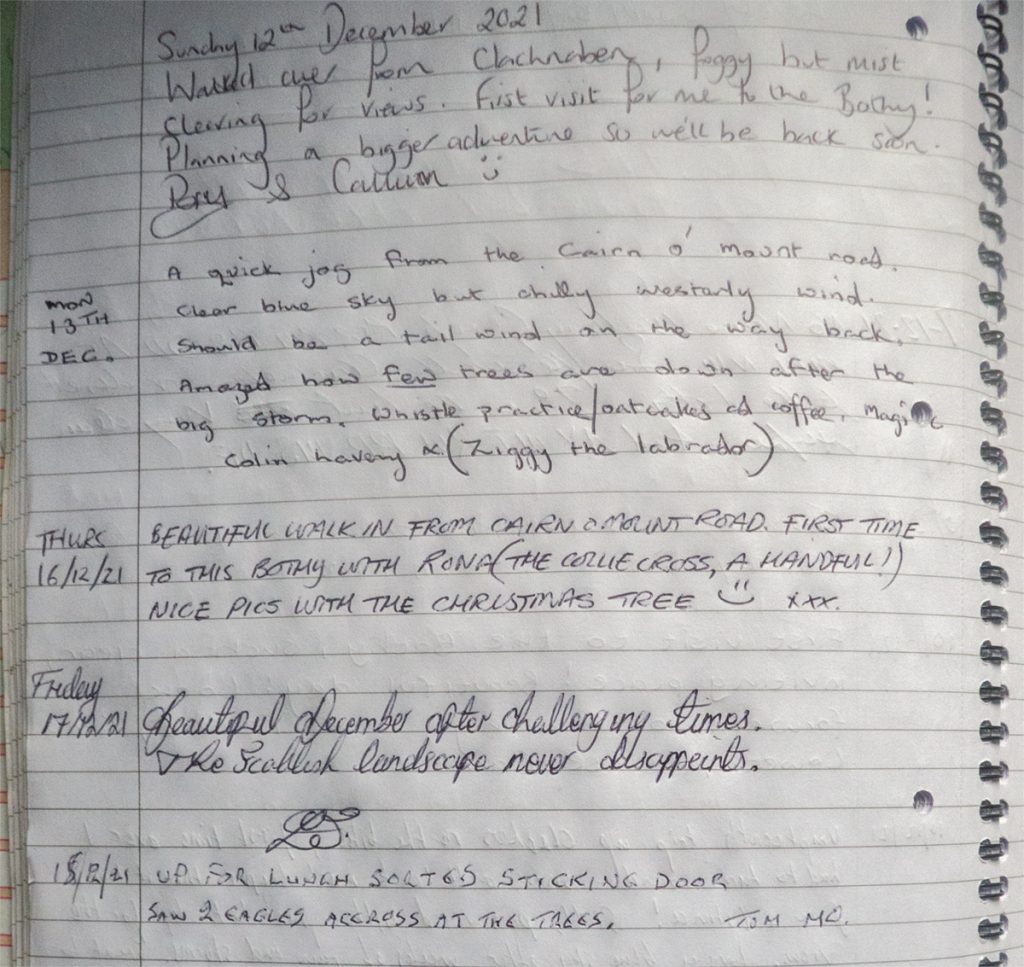 Sunday 12th December 2021
Walked over from Clachnaben, foggy but mist
clearing for views. First visit for me to the Bothy!
Planning a bigger adventure so we'll be back soon.
& Callum
A quick jog from the Cairn o' mount road.
MON
13TH
DEC.
Clear blue sky but chilly westerly wind.
Should be a tail wind on the way back.
Amazed how few trees are down after the
big storm. Whistle practice/oatcakes and coffee. Magic
Colin (Ziggy the labrador)
THURS
16/12/21
BEAUTIFUL WALK IN FROM CAIRN O MOUNT ROAD. FIRST TIME
TO THIS BOTHY WITH RONA (THE COLLIE CROSS, A HANDFUL!)
NICE PICS WITH THE CHRISTMAS TREE xxx.
Friday
17/12/21
Beautiful December after challenging times.
The Scottish landscape never disappoints.
18/12/21
UP FOR LUNCH SORTED STICKING DOOR
SAW 2 EAGLES ACCROSS AT THE TREES. TOM MC.